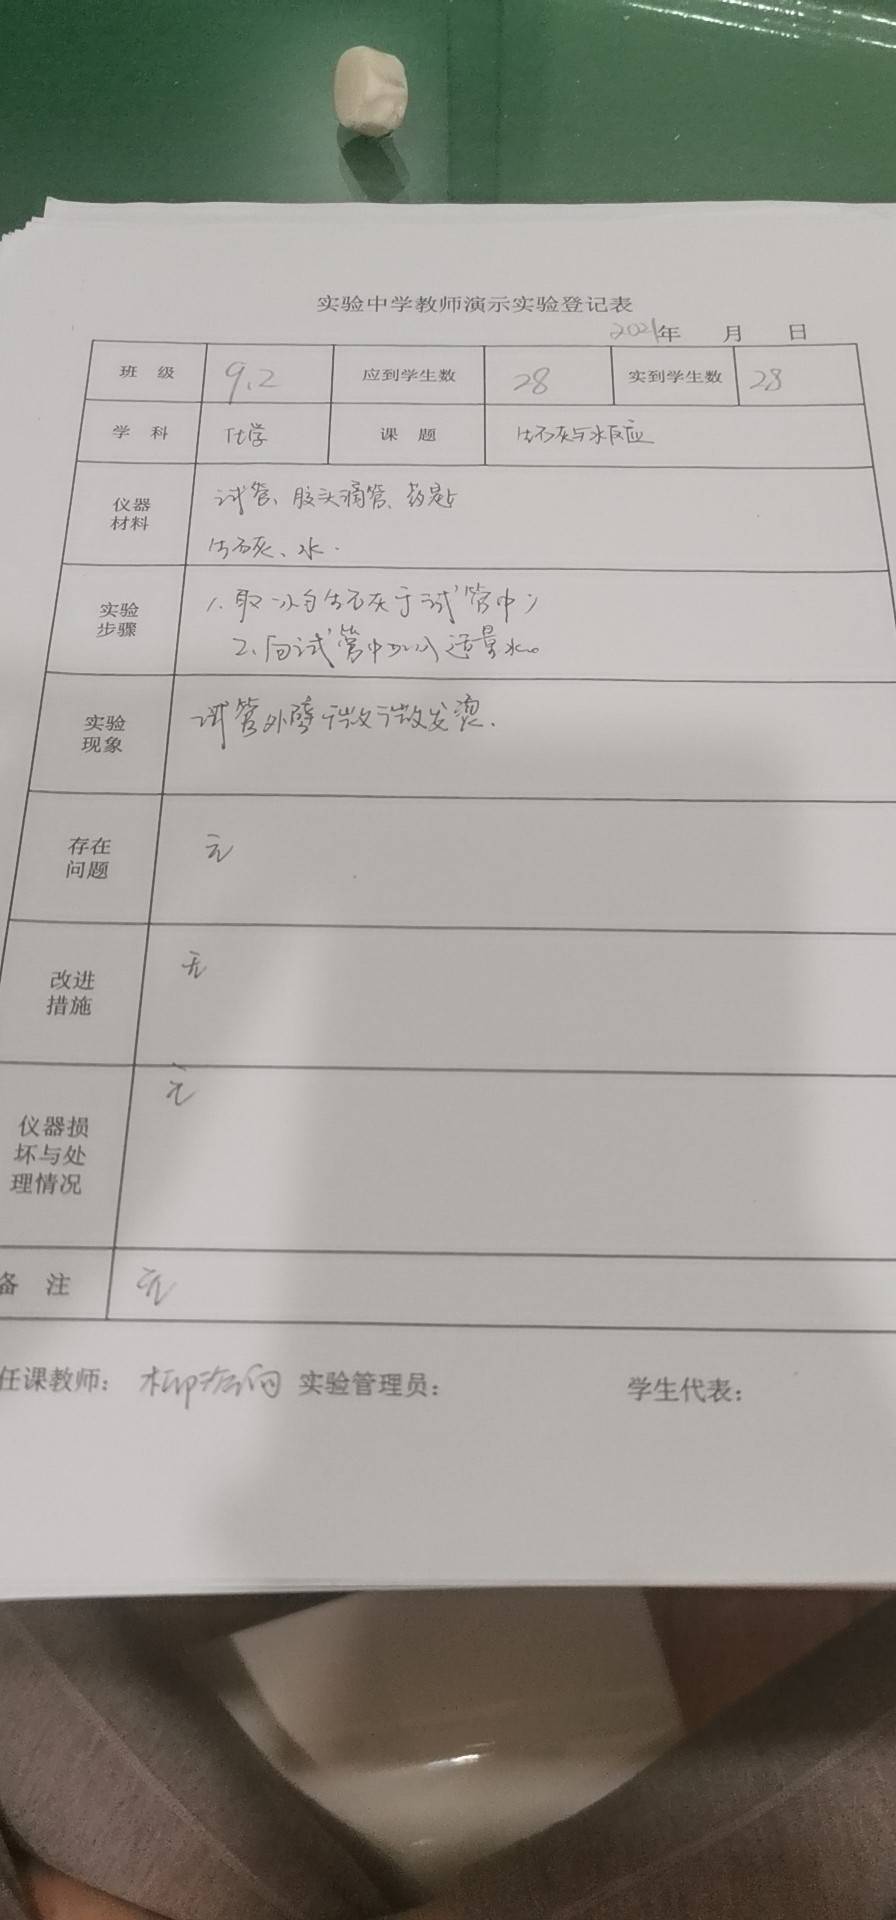 实验中学教师演示实验登记表
2021年 月 日
班 级 9.2 应到学生数 28 实到学生数 28
学 科 化学 课 题 生石灰与水反应
仪器材料 试管、胶头滴管、药匙
生石灰、水.
实验步骤 1.取一小勺生石灰于试管中;
2.向试管中加入适量水。
实验现象 试管外壁微微发烫.
存在问题 无
改进措施 无
仪器损坏与处理情况 无
备 注 无
任课教师: 实验管理员: 学生代表: